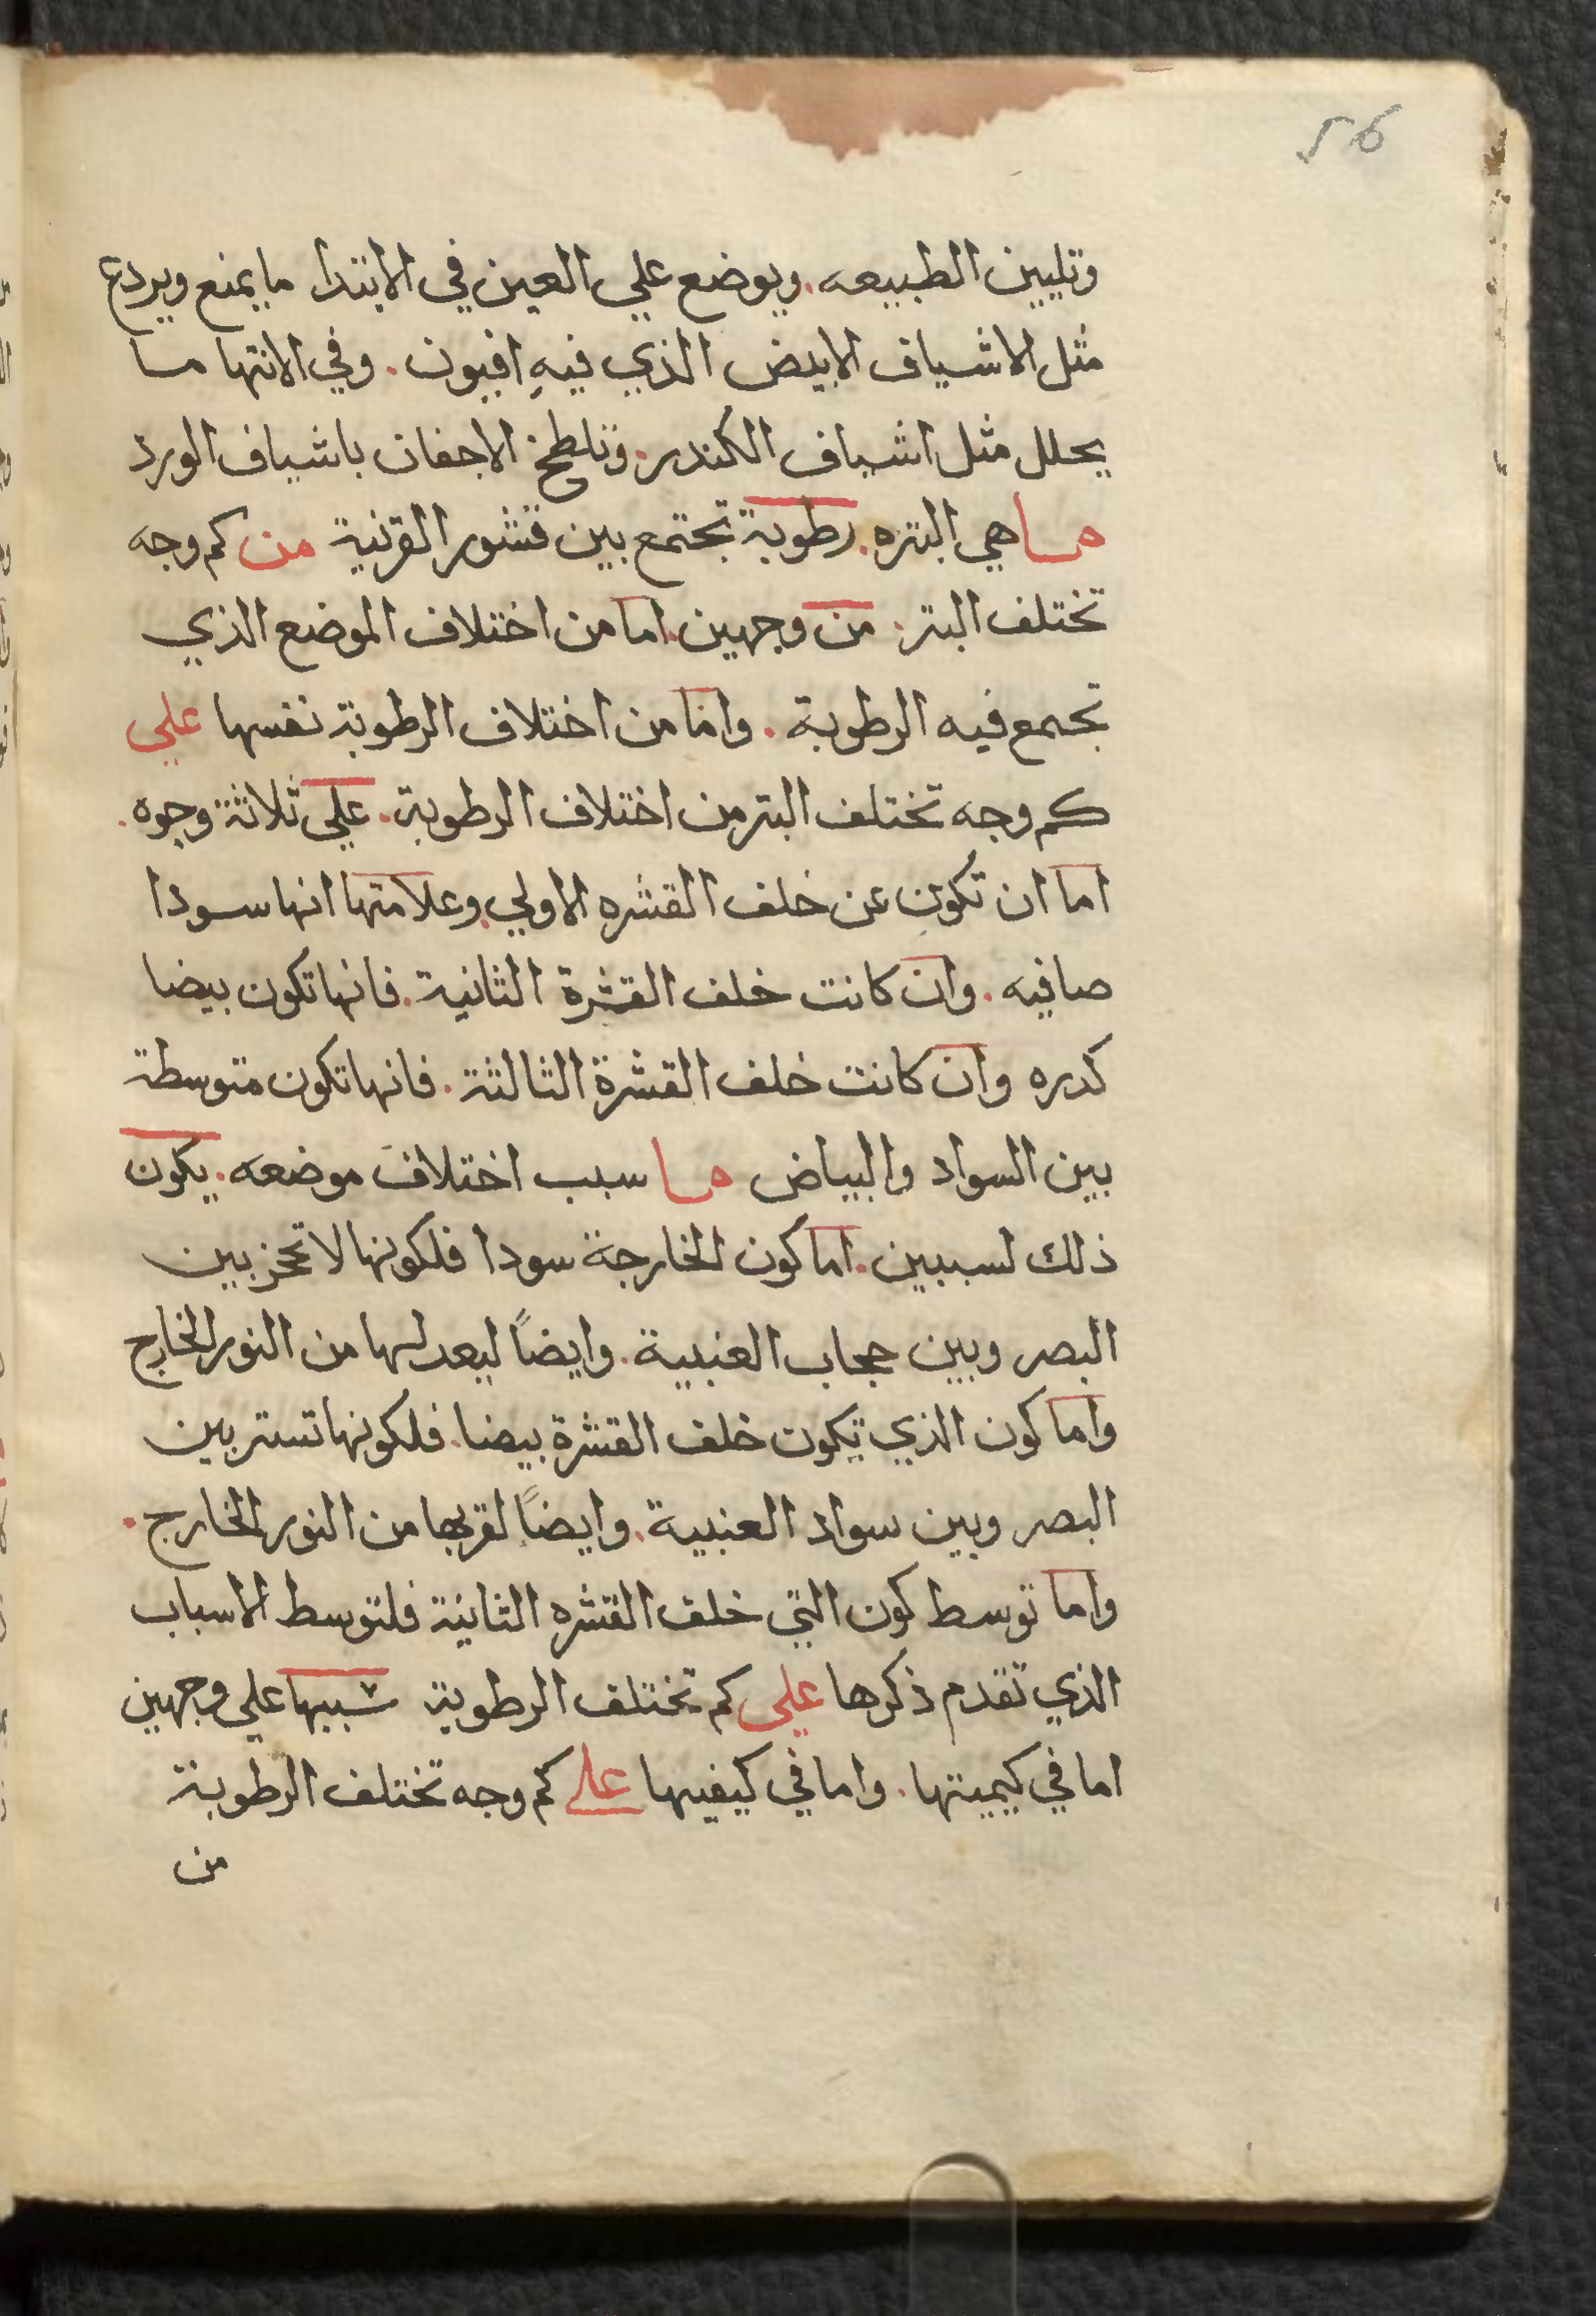 56
وتليين الطبيعه. ويوضع علي العين في الابتدا ما يمنع ويردع
مثل الاشياف الابيض الذي فيهِ افيون. وفي الانتها ما
يحلل مثل اشياف الكندر. وتلطخ الاجفان باشياف الورد
ما هي البتره. رطوبة تجتمع بين قشور القرنية من كم وجه
تختلف البتر. من وجهين. اما من اختلاف الموضع الذي
تجتمع فيه الرطوبة. واما من اختلاف الرطوبة نفسها علي
كم وجه تختلف البتر من اختلاف الرطوبة. علي ثلاثة وجوه.
اما ان تكون عن خلف القشره الاولي. وعلامتها انها سودا
صافيه. وان كانت خلف القشرة الثانية. فانها تكون بيضا
كدره وان كانت خلف القشرة الثالثة. فانها تكون متوسطة
بين السواد والبياض ما سبب اختلاف موضعه. يكون
ذلك لسببين. اما كون الخارجة سودا فلكونها لا تحجز بين
البصر وبين حجاب العنبية. وايضاً لبعدلها من النور الخارج
واما كون الذي تكون خلف القشرة بيضا. فلكونها تستر بين
البصر وبين سواد العنبية. وايضاً لقربها من النور الخارج.
واما توسط كون التي خلف القشره الثانية فلتوسط الاسباب
الذي تقدم ذكرها علي كم تختلف الرطوبة شببها علي وجهين
اما في كيميتها. واما في كيفيها علي كم وجه تختلف الرطوبة
من